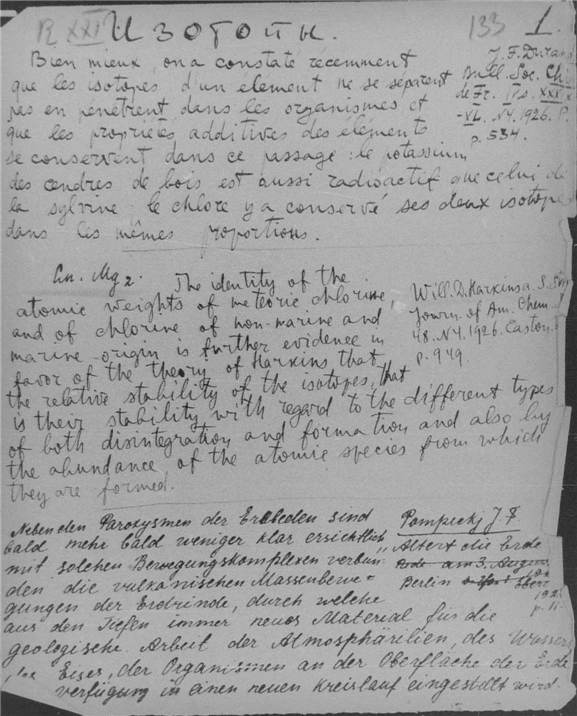 R XXI Изотопы. 133 1.
Bien mieux, on a constaté récemment
que les isotopes d'un élement ne se séparent
pas en pénétrent dans les organismes et
que les propriétés additives des eléments
se conservent dans ce passage: le potassium
des cendres de bois est aussi radioactif que celui de
la sylvine: le chlore y a conservé ses deux isotopes
dans les mêmes proportions.
J. F. Durand
Bull. Soc. Ch
de Fr. Ps. XXXIX
-XL. N4. 1926. P.
p. 534.
Mg2. The identity of the
atomic weights of meteoric chlorine,
and of chlorine of non-marine and
marine origin is further evidence in
favor of the theory of Harkins that
the relative stability of the isotopes, that
is their stability with regard to the different types
of both disintegration and formation and also by
the abundance of the atomic species from which
they are formed.
Will. D. Harkins a. S.
Journ. of Am. Chem.
48. N4. 1926. Easton.
p. 949.
Neben den Paroxysmen der Erdbeden sind
bald mehr bald weniger klar ersichtlich
mit solchen Bewegungskomplexen verbun-
den die vulkanischen Massenbewe-
gungen der Erdrinde, durch welche
aus den Tiefen immer neues Material für die
geologische Arbeit der Atmosphärilien, des Wassers,
Eises, der Organismen an der Oberfläche der Erde
verfügung in einen neuen Kreislauf eingestellt wird.
Pompeckj J. F
"Altert die Erde
am 3. August
Berlin
192
p. 11.